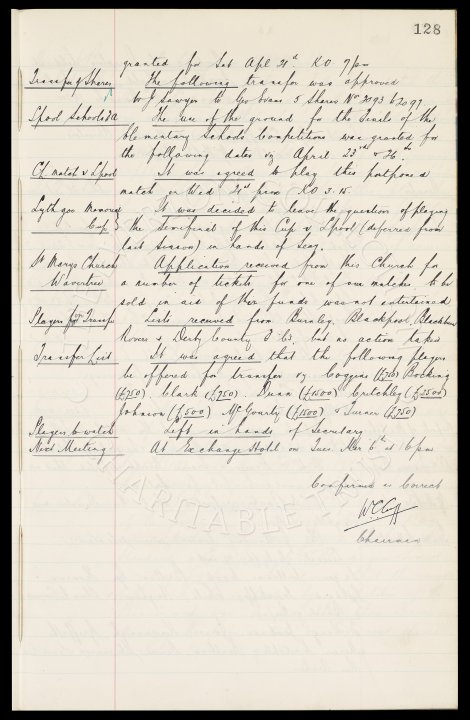 128
granted for Sat Apl 21st KO 7pm
Transfer of Shares The following transfer was approved
to J Sawyer to Geo Evans 5 Shares Nos 2093 to 2097
Lpool Schools FA The use of the ground for the Finals of the
Elementary Schools Competition was granted for
the following dates viz April 23rd & 26th.
CL match v Lpool It was agreed to play this postponed
match on Wed 21st prox KO 3.15
Lythgoe Memorial It was decided to leave the question of playing
Cup the Semifinal of this Cup v Lpool (deferred from
last season) in hands of Secy.
St Marys Church Application received from this Church for
Wavertree a number of tickets for one of our matches to be
sold in aid of their funds was not entertained
Players for Transfer Lists received from Burnley, Blackpool, Blackburn
Rovers & Derby County F.C's. but no action taken
Transfer List It was agreed that the following players
be offered for transfer viz Coggins Bocking
(£750) Clark (£750). Dunn (£1500) Critchley (£2500)
Johnson (£500) McGourty (£1500) & Turner (£750)
Players to watch Left in hands of Secretary
Next Meeting At Exchange Hotel on Tues. Mar 6th at 6 pm
Confirmed as Correct
W.C. Cuff
Chairman
CHARITABLE TRUST